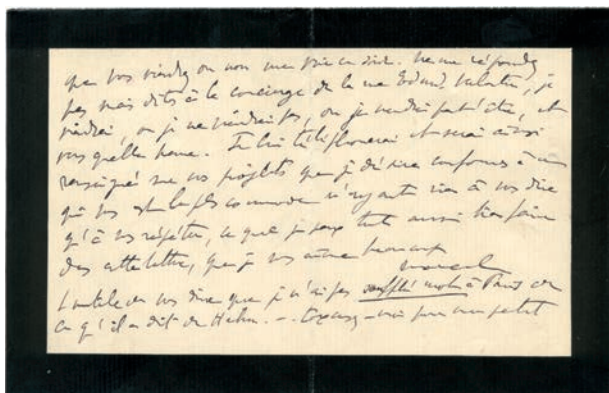 que vous viendrez ou non me voir ce soir. Ne me répondez
pas mais dites à le concierge de la rue Edmd Valentin, je
viendrai, ou je ne viendrai pas, ou je viendrai peut'être, et
vers quelle heure. Je lui téléphonerai et serai ainsi
renseigné sur vos projets que je désire conformes à ce
qui vous est le plus commode n'ayant rien à vous dire
qu'à vous répéter, ce que je peux tout aussi bien faire
dans cette lettre, que je vous aime beaucoup
Marcel
Inutile de vous dire que je n'ai pas soufflé mot à de
ce qu'il a dit de Hahn. — Excusez-moi pour un petit